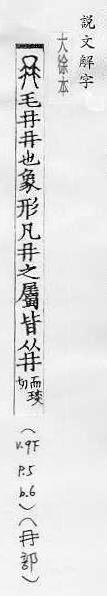 說文解字
大徐本
毛冄冄也象形凡冄之屬皆从冄
而琰
切
(V.9下
P.5
b.6)(冄部)